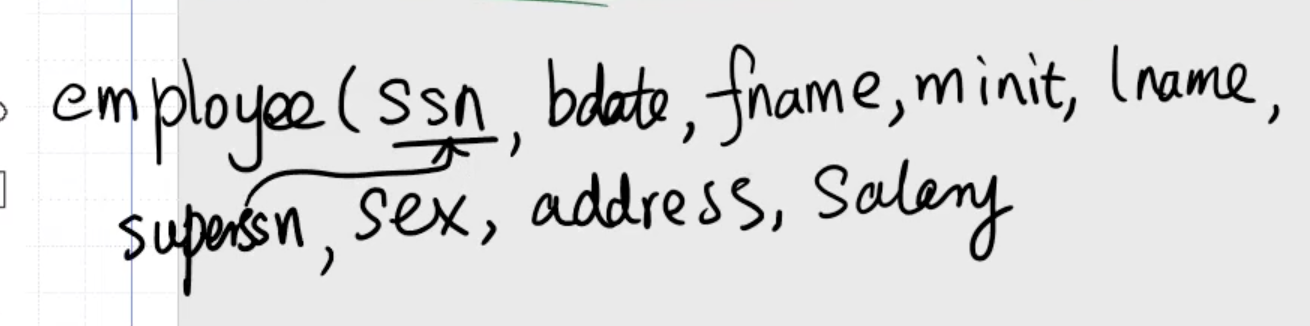 employee(ssn, bdate, fname, minit, lname,
superssn, sex, address, salary